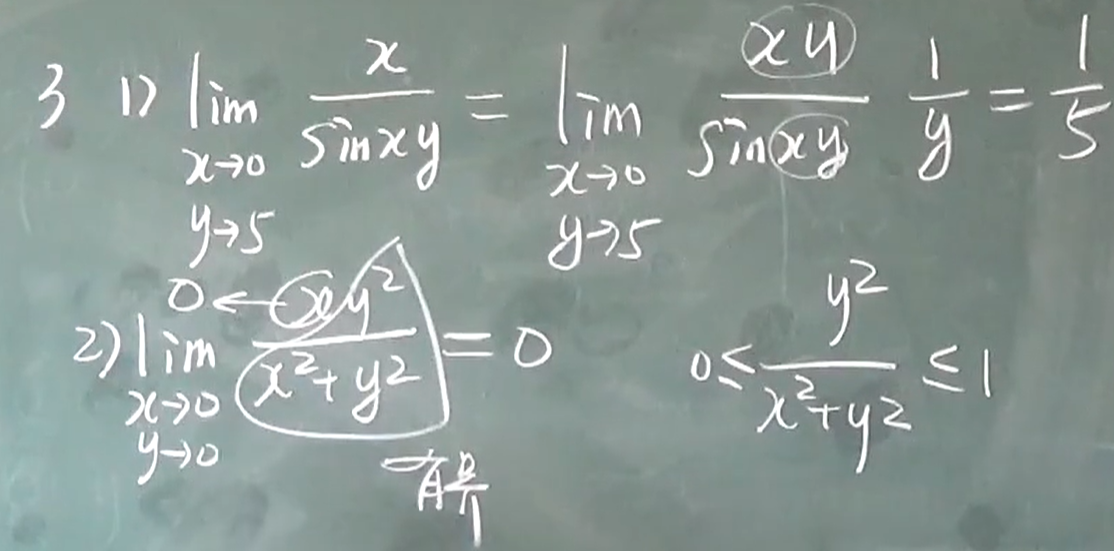 3 1) lim x→0 y→5 x/sinxy = lim x→0 y→5 xy/sinxy 1/y = 1/5
2) lim x→0 y→0 xy²/x²+y² = 0 0≤ y²/x²+y² ≤1
0←
有界